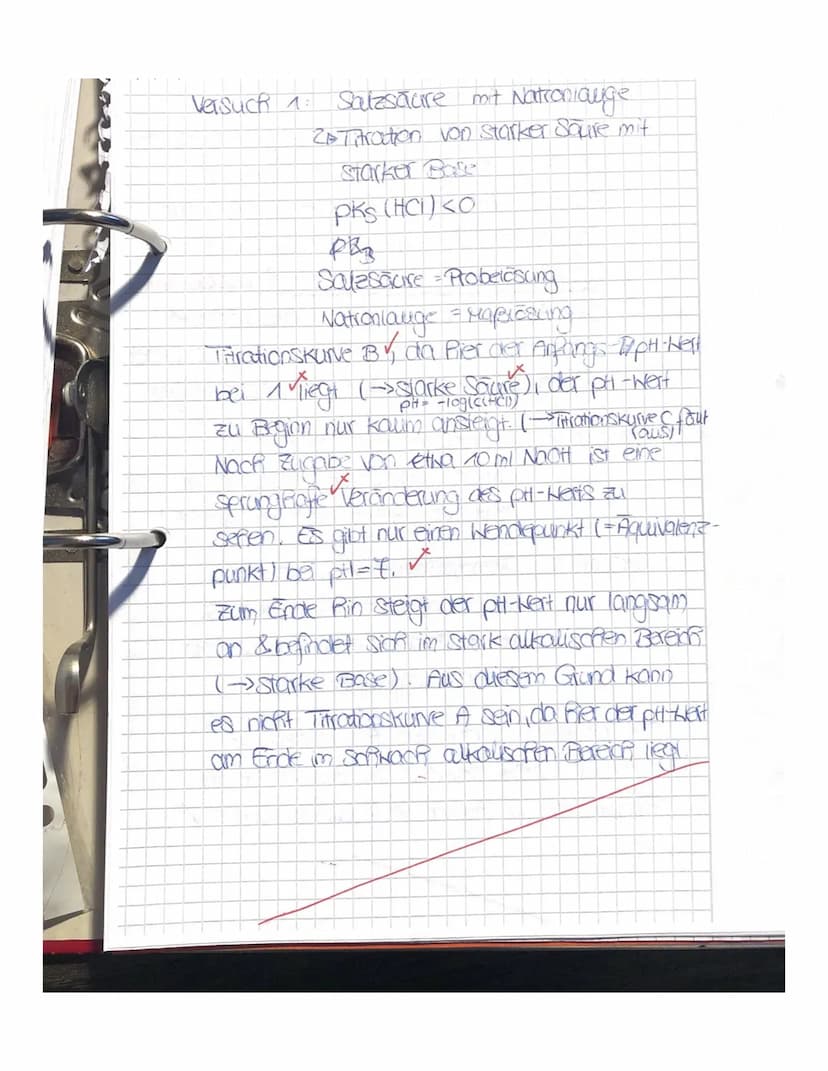 Versuch 1: Salzsäure mit Natronlauge
Titration von starker Säure mit
starker Base
pKs (HCl) < 0
Salzsäure = Probelösung
Natronlauge = Maßlösung
Titrationskurve B, da hier der Anfangs-pH-Wert
bei 1 liegt (→ starke Säure), der pH-Wert
pH = -log(c(HCl))
zu Beginn nur kaum ansteigt. (→ Titrationskurve C fällt
(aus)
Nach Zugabe von etwa 10 ml NaOH ist eine
sprunghafte Veränderung des pH-Werts zu
sehen. Es gibt nur einen Wendepunkt (= Äquivalenz-
punkt) bei pH = 7.
Zum Ende hin steigt der pH-Wert nur langsam
an & befindet sich im stark alkalischen Bereich
(→ starke Base). Aus diesem Grund kann
es nicht Titrationskurve A sein, da hier der pH-Wert
am Ende im schwach alkalischen Bereich liegt